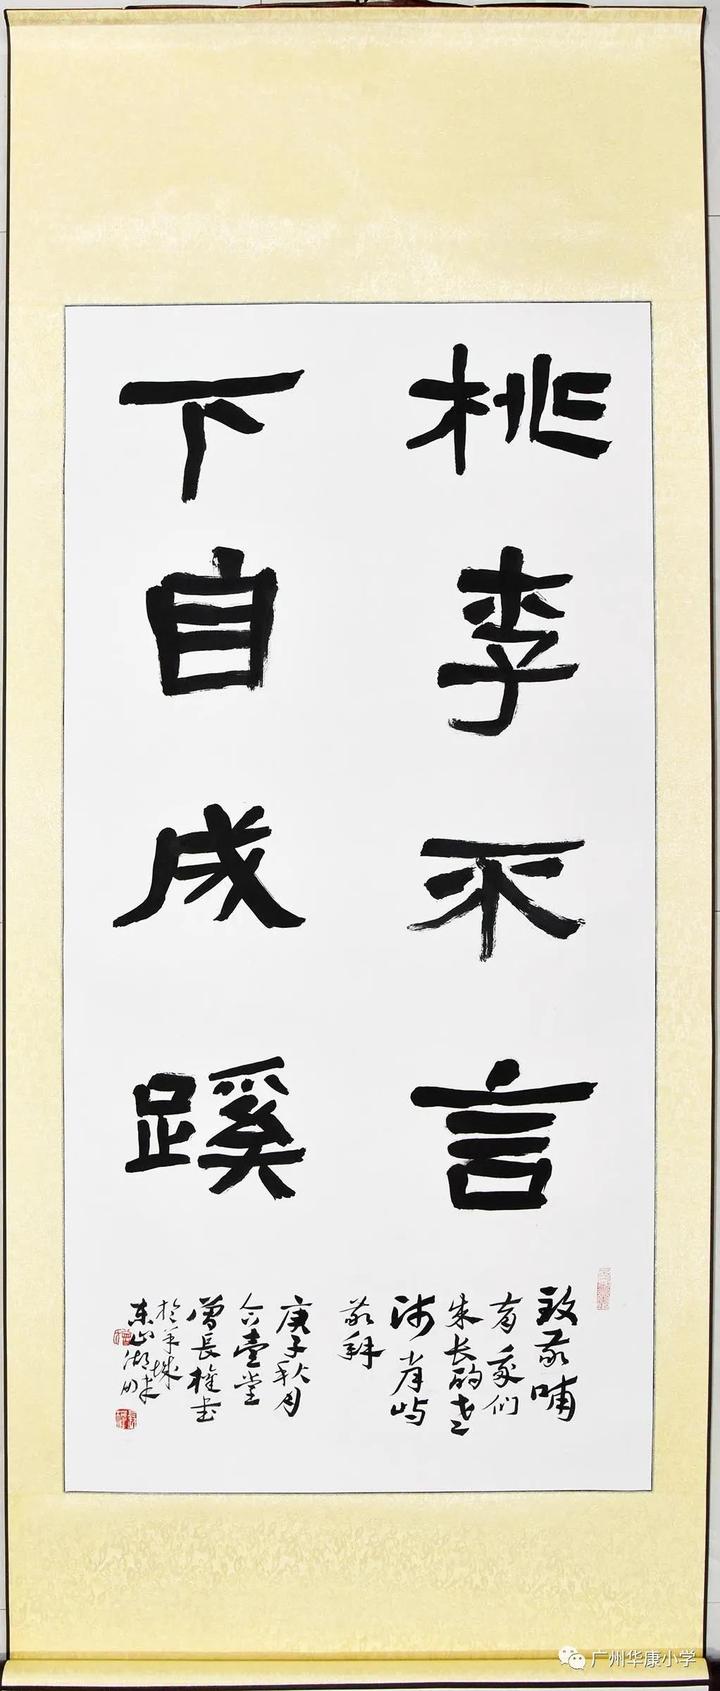 桃李不言
下自成蹊
致敬哺
育我们
成长的老
师 肖屿
敬拜
庚子秋月
古壹堂
曾長權书
於羊城
东山湖畔
广州华康小学